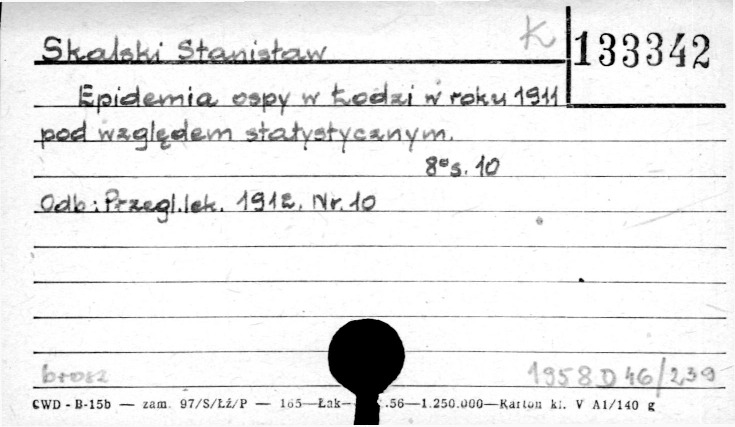 K 133342
Skalski Stanisław
Epidemia ospy w Łodzi w roku 1911
pod względem statystycznym.
8° s. 10
Odb: Przegl. lek. 1912. Nr. 10
brosz
1958 D 46/239
CWD - B-15b — zam. 97/S/Łż/P — 165—Łak- .56—1.250.000—Karton kl. V A1/140 g